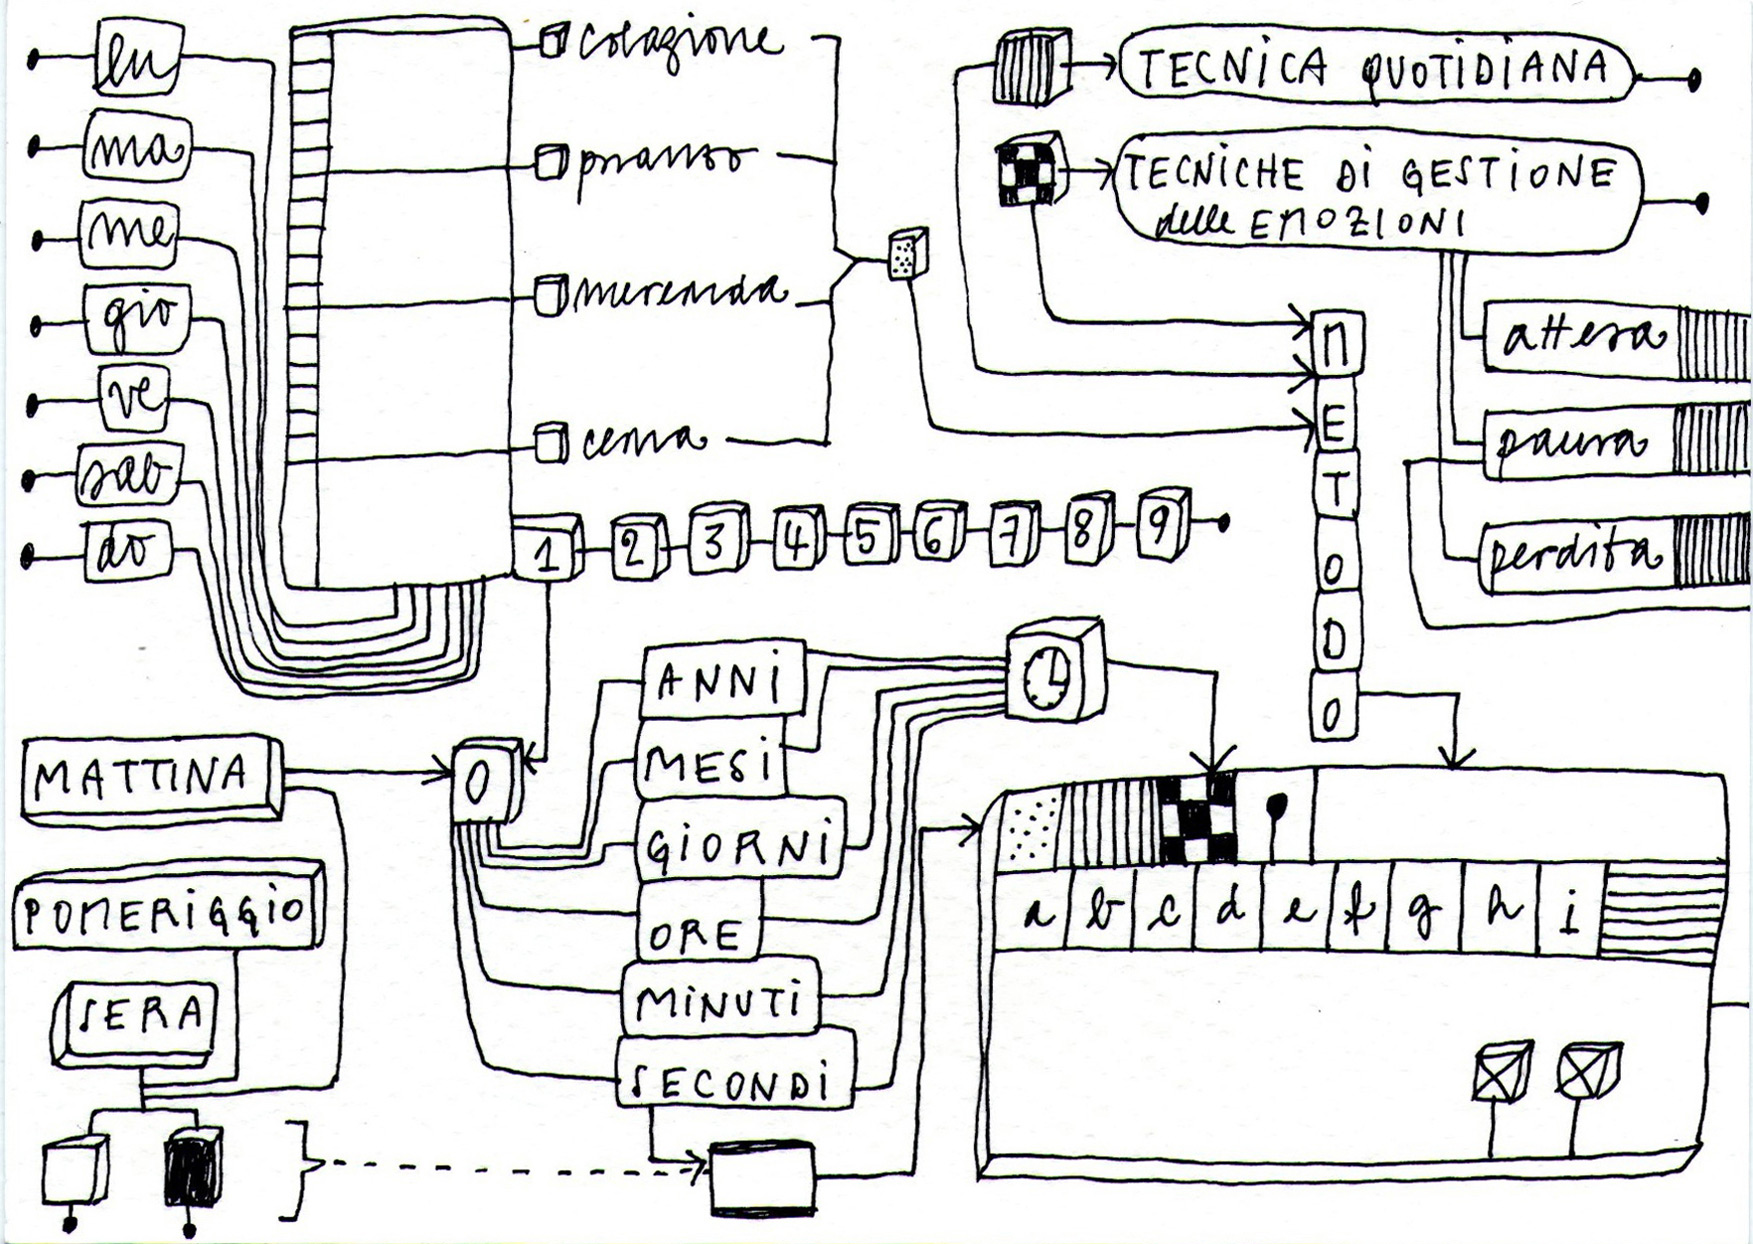 lu
ma
me
gio
ve
sab
do
colazione
pranzo
merenda
cena
1 2 3 4 5 6 7 8 9
TECNICA QUOTIDIANA
TECNICHE DI GESTIONE
delle EMOZIONI
attesa
paura
perdita
METODO
MATTINA
POMERIGGIO
SERA
0
ANNI
MESI
GIORNI
ORE
MINUTI
SECONDI
a b c d e f g h i